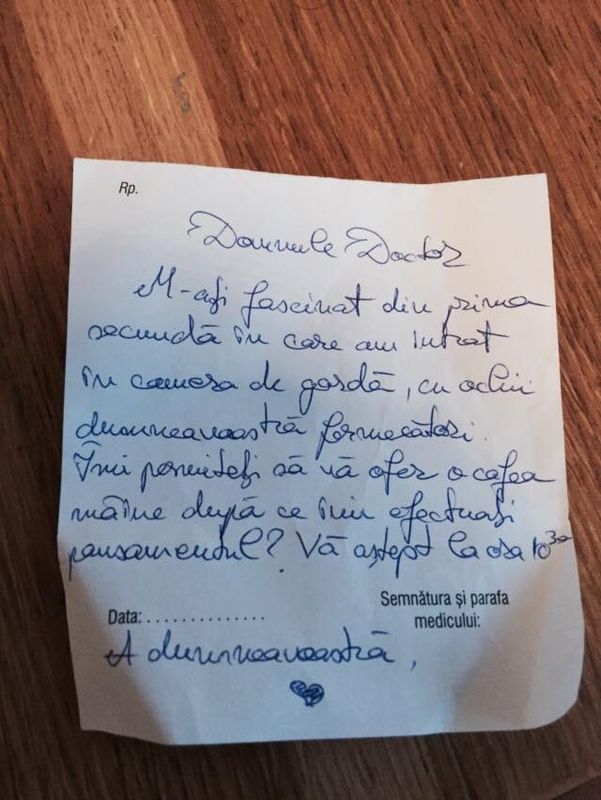 Rp.
Domnule Doctor
M-ați fascinat din prima
secundă în care am intrat
în camera de gardă, cu ochii
dumneavoastră fermecători.
Îmi permiteți să vă ofer o cafea
mâine după ce îmi efectuați
pansamentul? Vă aștept la ora 10³⁰
Semnătura și parafa
Data: ..............
medicului:
A dumneavoastră,